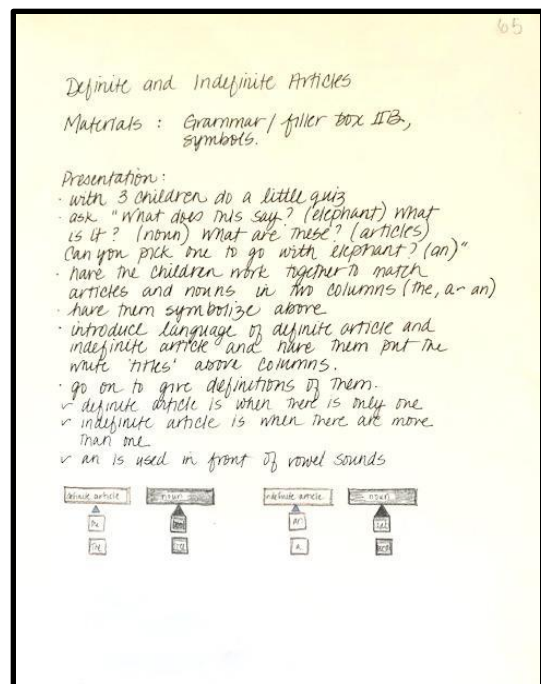 65
Definite and Indefinite Articles
Materials : Grammar / filler box IIB,
symbols.
Presentation:
· with 3 children do a little quiz
· ask "What does this say? (elephant) What
is it? (noun) What are these? (articles)
Can you pick one to go with elephant? (an)"
· have the children work together to match
articles and nouns in two columns (the, a - an)
· have them symbolize above
· introduce language of definite article and
indefinite article and have them put the
white 'titles' above columns.
· go on to give definitions of them.
✓ definite article is when there is only one
✓ indefinite article is when there are more
than one
✓ an is used in front of vowel sounds
definite article noun indefinite article noun
the an
the a